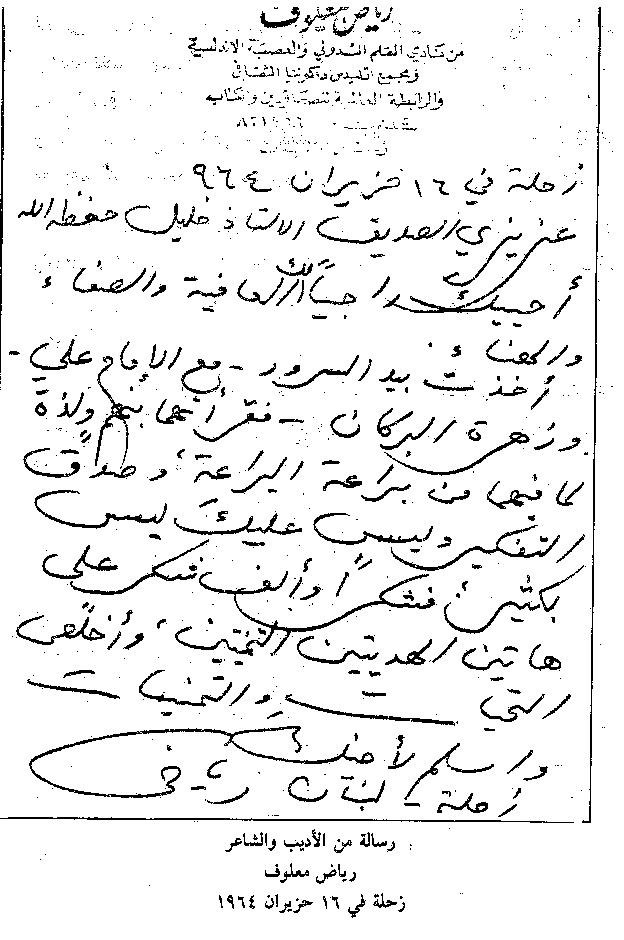 رياض معلوف
من نادي القلم الدولي والعصبة الاندلسية
ومجمع
والرابطة
زحلة في ١٦ حزيران ٩٦٤
عزيزي الصديق الاستاذ خليل حفظه الله
أحييك راجياً لك العافية والصفاء
والهناء.
أخذت بيد السرور - مع الإمام علي -
وزهرة البركان - فقرأتهما بنهم ولذة
لما فيهما من براعة اليراعة، وصداق
التفكير وليس عليك ليس
بكثير، فشكراً وألف شكر على
هاتين الهديتين الثمينتين، وأخلص
التحيات والتمنيات
واسلم لأخيك
زحلة - لبنان رياض
رسالة من الأديب والشاعر
رياض معلوف
زحلة في ١٦ حزيران ١٩٦٤